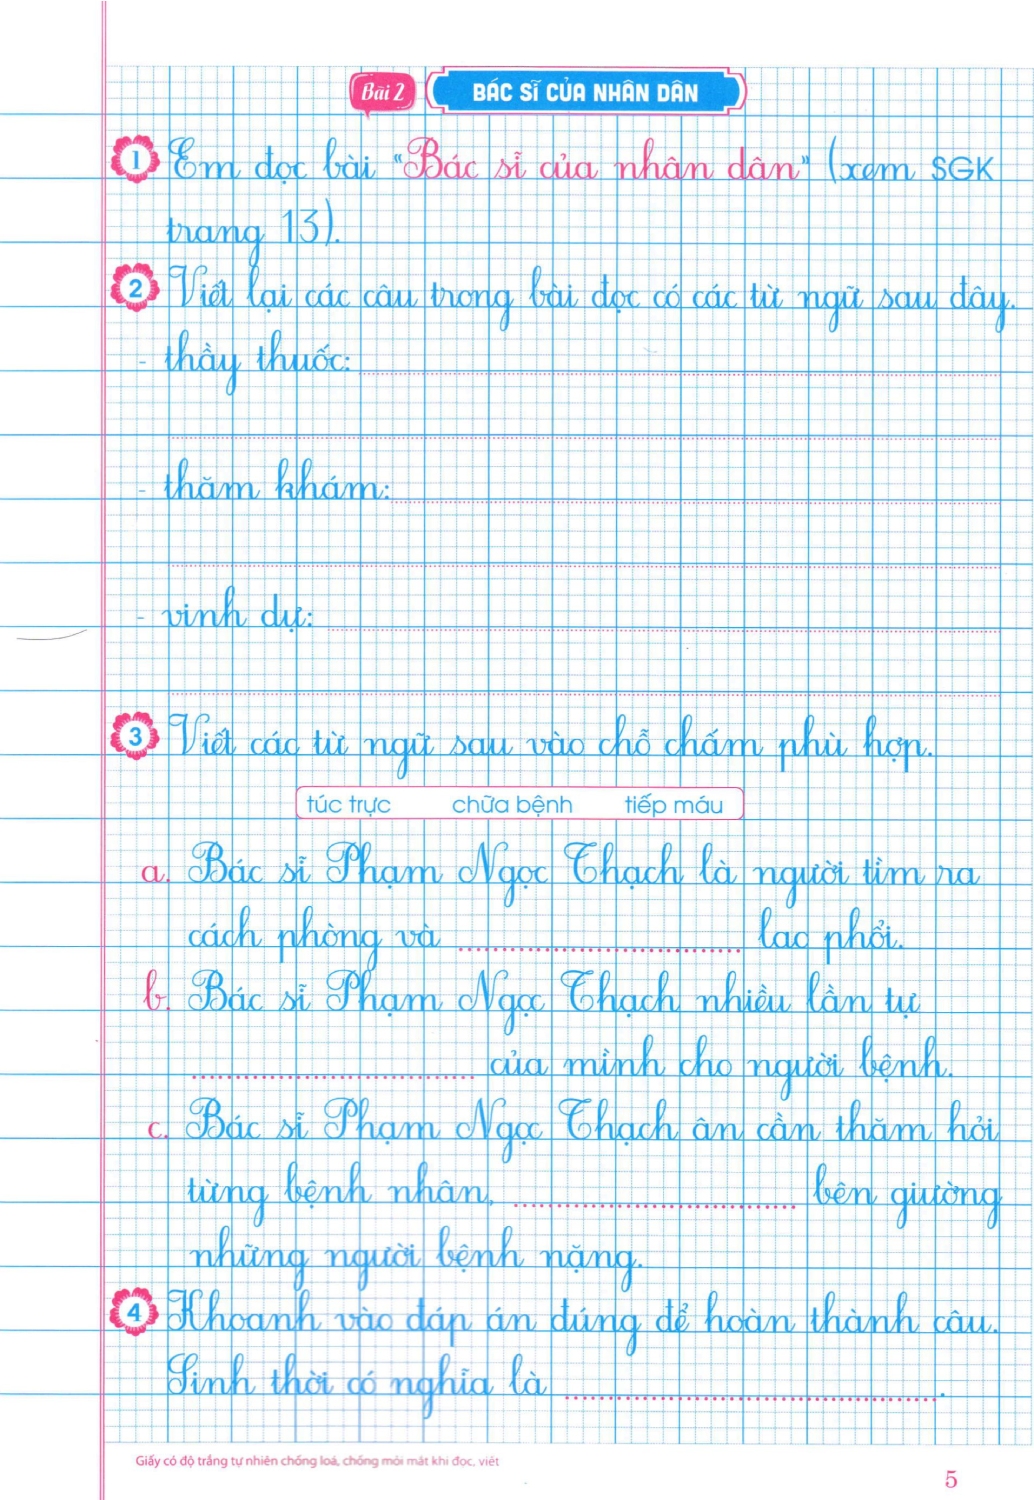 Bài 2 BÁC SĨ CỦA NHÂN DÂN
1 Em đọc bài "Bác sĩ của nhân dân" (xem SGK
trang 13).
2 Viết lại các câu trong bài đọc có các từ ngữ sau đây.
- thầy thuốc:
- thăm khám:
- vinh dự:
3 Viết các từ ngữ sau vào chỗ chấm phù hợp.
túc trực chữa bệnh tiếp máu
a. Bác sĩ Phạm Ngọc Thạch là người tìm ra
cách phòng và .......... lao phổi.
b. Bác sĩ Phạm Ngọc Thạch nhiều lần tự
.......... của mình cho người bệnh.
c. Bác sĩ Phạm Ngọc Thạch ân cần thăm hỏi
từng bệnh nhân, .......... bên giường
những người bệnh nặng.
4 Khoanh vào đáp án đúng để hoàn thành câu.
Sinh thời có nghĩa là ..........
Giấy có độ trắng tự nhiên chống loá, chống mỏi mắt khi đọc, viết
5